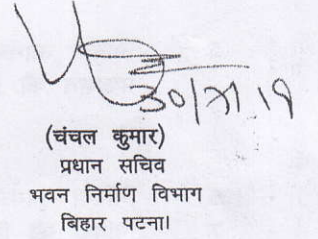 30/11/19
(चंचल कुमार)
प्रधान सचिव
भवन निर्माण विभाग
बिहार पटना।